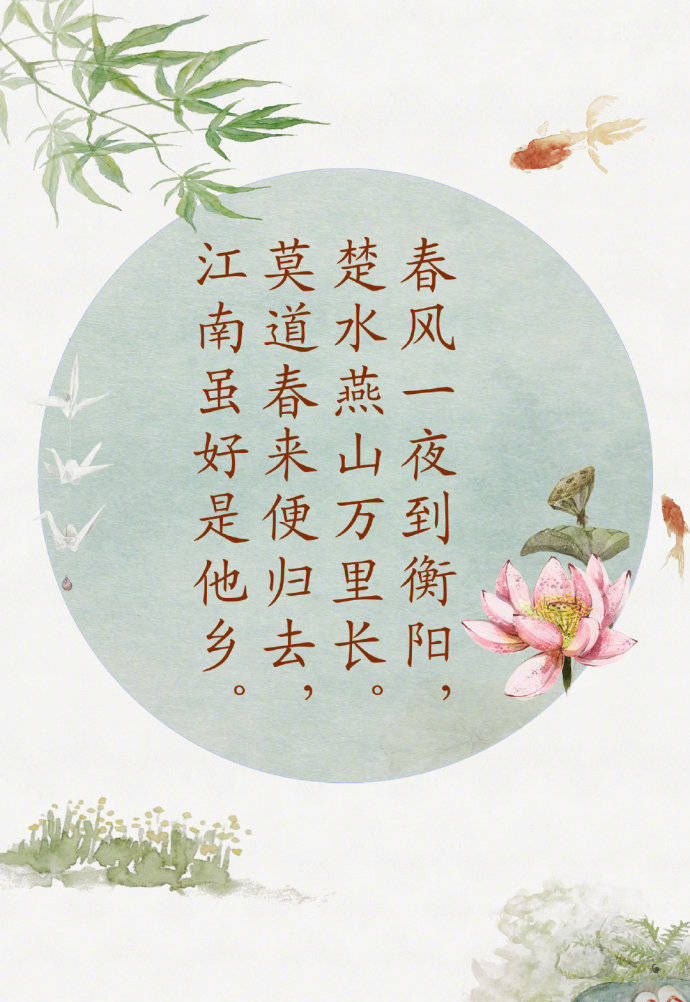 春风一夜到衡阳，
楚水燕山万里长。
莫道春来便归去，
江南虽好是他乡。